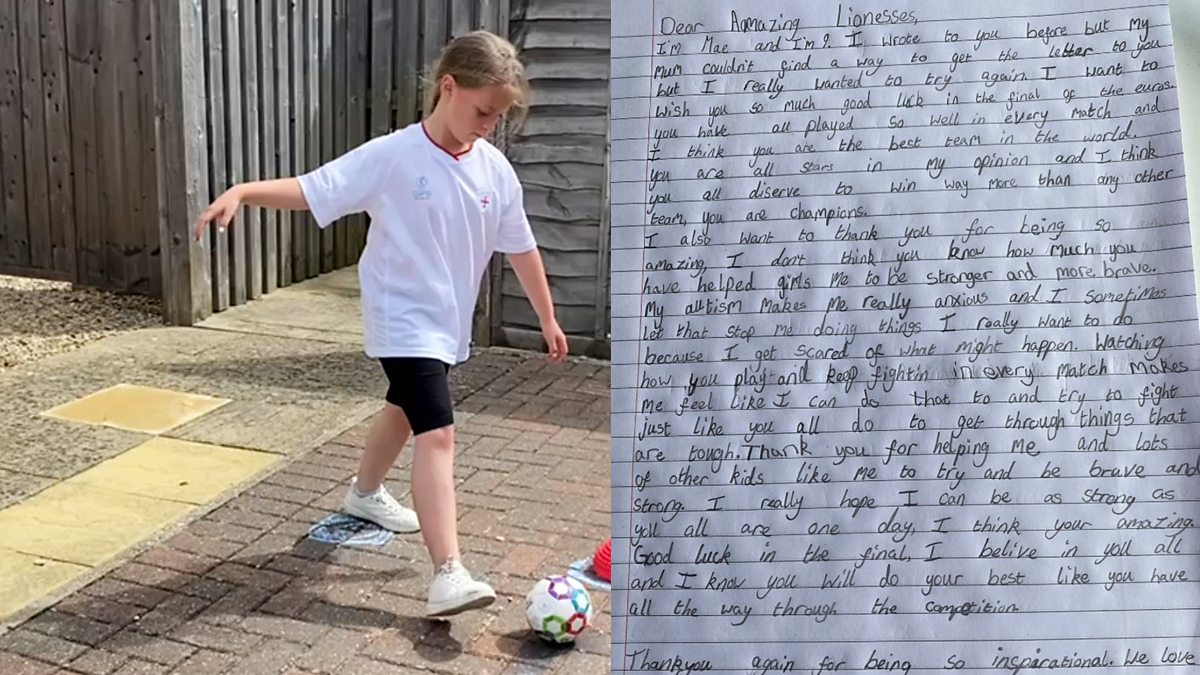 Dear Amazing Lionesses,
I'm Mae and I'm 9. I wrote to you before but My
Mum couldn't find a way to get the letter to you
but I really wanted to try again. I want to
wish you so much good luck in the final of the euros.
you have all played so well in every match and
I think you are the best team in the world.
you are all stars in my opinion and I think
you all diserve to win way more than any other
team, you are champions.
I also want to thank you for being so
amazing, I don't think you know how much you
have helped girls like me to be stronger and more brave.
My autism makes me really anxious and I sometimes
let that stop me doing things I really want to do
because I get scared of what might happen. Watching
how you play and keep fightin in every match makes
me feel like I can do that to and try to fight
just like you all do to get through things that
are tough. Thank you for helping me and lots
of other kids like me to try and be brave and
strong. I really hope I can be as strong as
you all are one day, I think your amazing.
Good luck in the final, I belive in you all
and I know you will do your best like you have
all the way through the competition.
Thankyou again for being so inspirational. We love